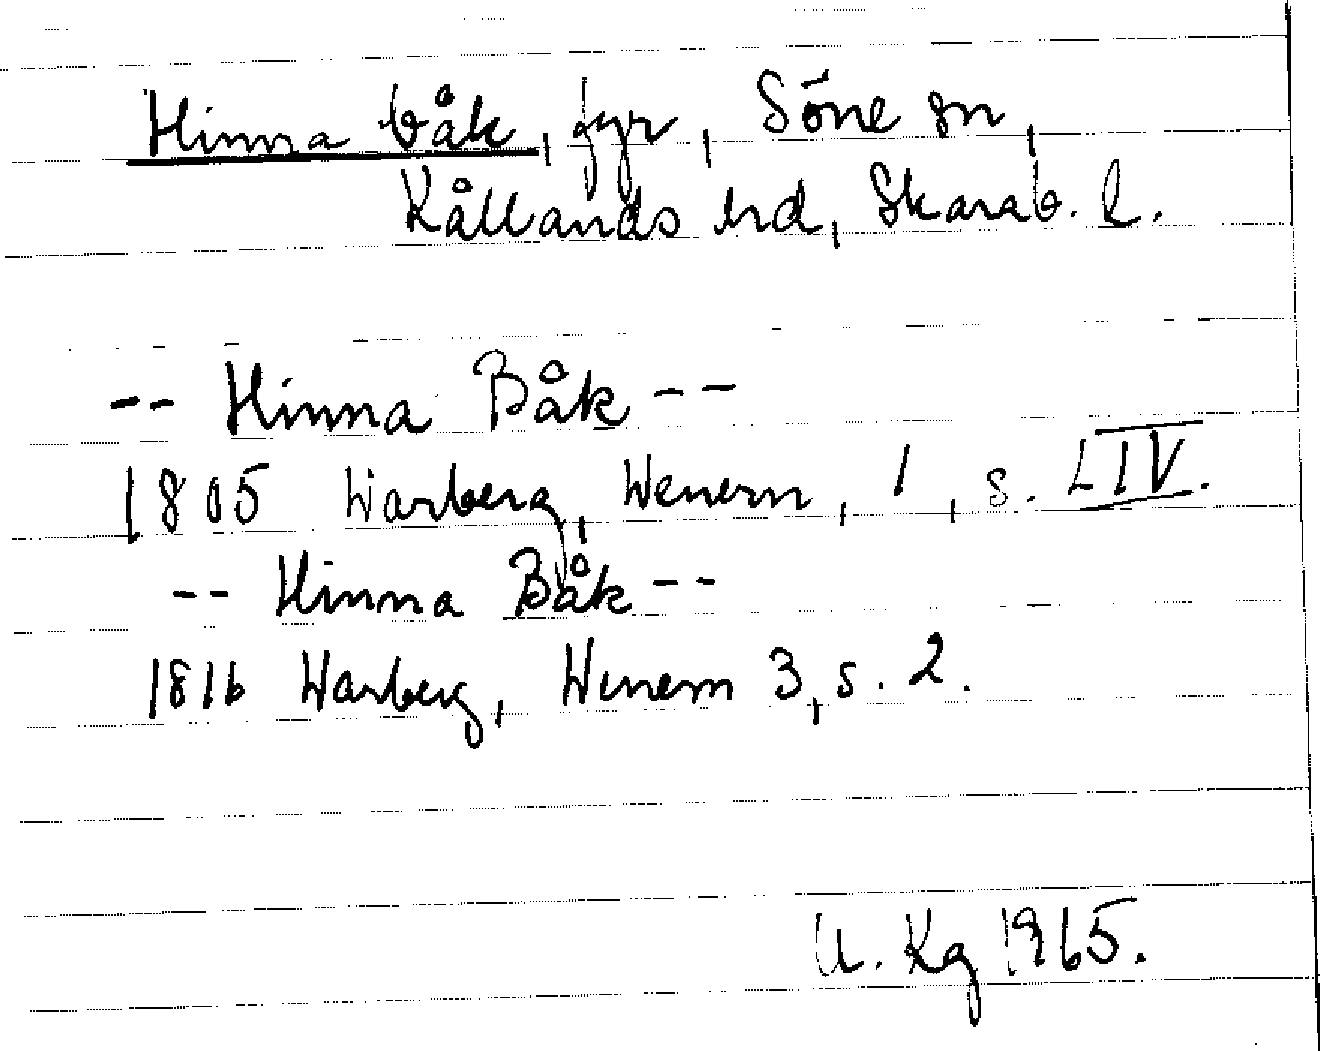 Hinna båk, fyr, Söne sn,
Kållands hrd, Skarab. l.
-- Hinna Båk --
1805 Warberg, Wenern, 1, s. LIV.
-- Hinna Båk --
1816 Warberg, Wenern 3, s. 2.
U. Kg 1965.